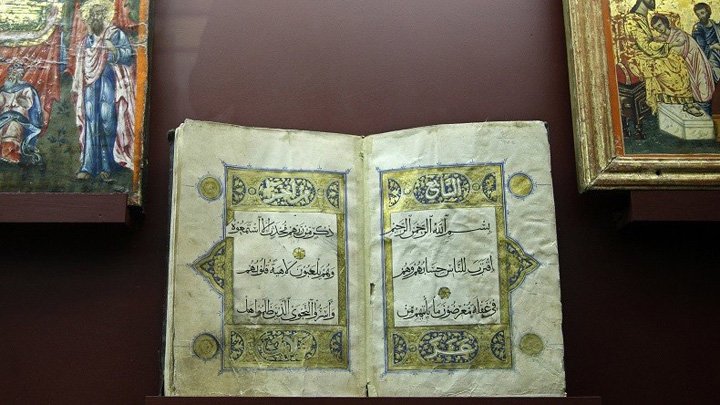 بسم الله الرحمن الرحيم
اقترب للناس حسابهم وهم
في غفلة معرضون ما يأتيهم من
ذكر من ربهم محدث إلا استمعوه
وهم يلعبون لاهية قلوبهم
وأسروا النجوى الذين ظلموا هل